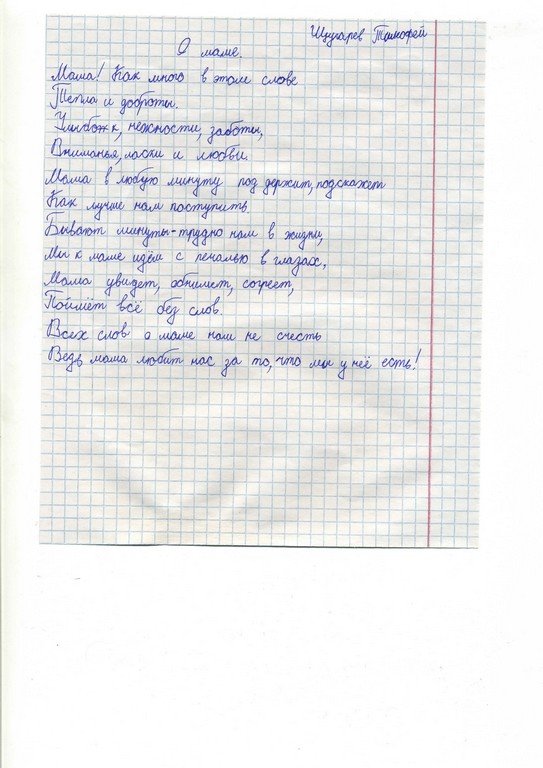 Щугарев Тимофей
О маме.
Мама! Как много в этом слове
Тепла и доброты.
Улыбок, нежности, заботы,
Вниманья, ласки и любви.
Мама в любую минуту под держит, подскажет
Как лучше нам поступить.
Бывают минуты-трудно нам в жизни,
Мы к маме идём с печалью в глазах,
Мама увидет, обнимет, согреет,
Поймёт всё без слов.
Всех слов о маме нам не счесть
Ведь мама любит нас за то, что мы у неё есть!